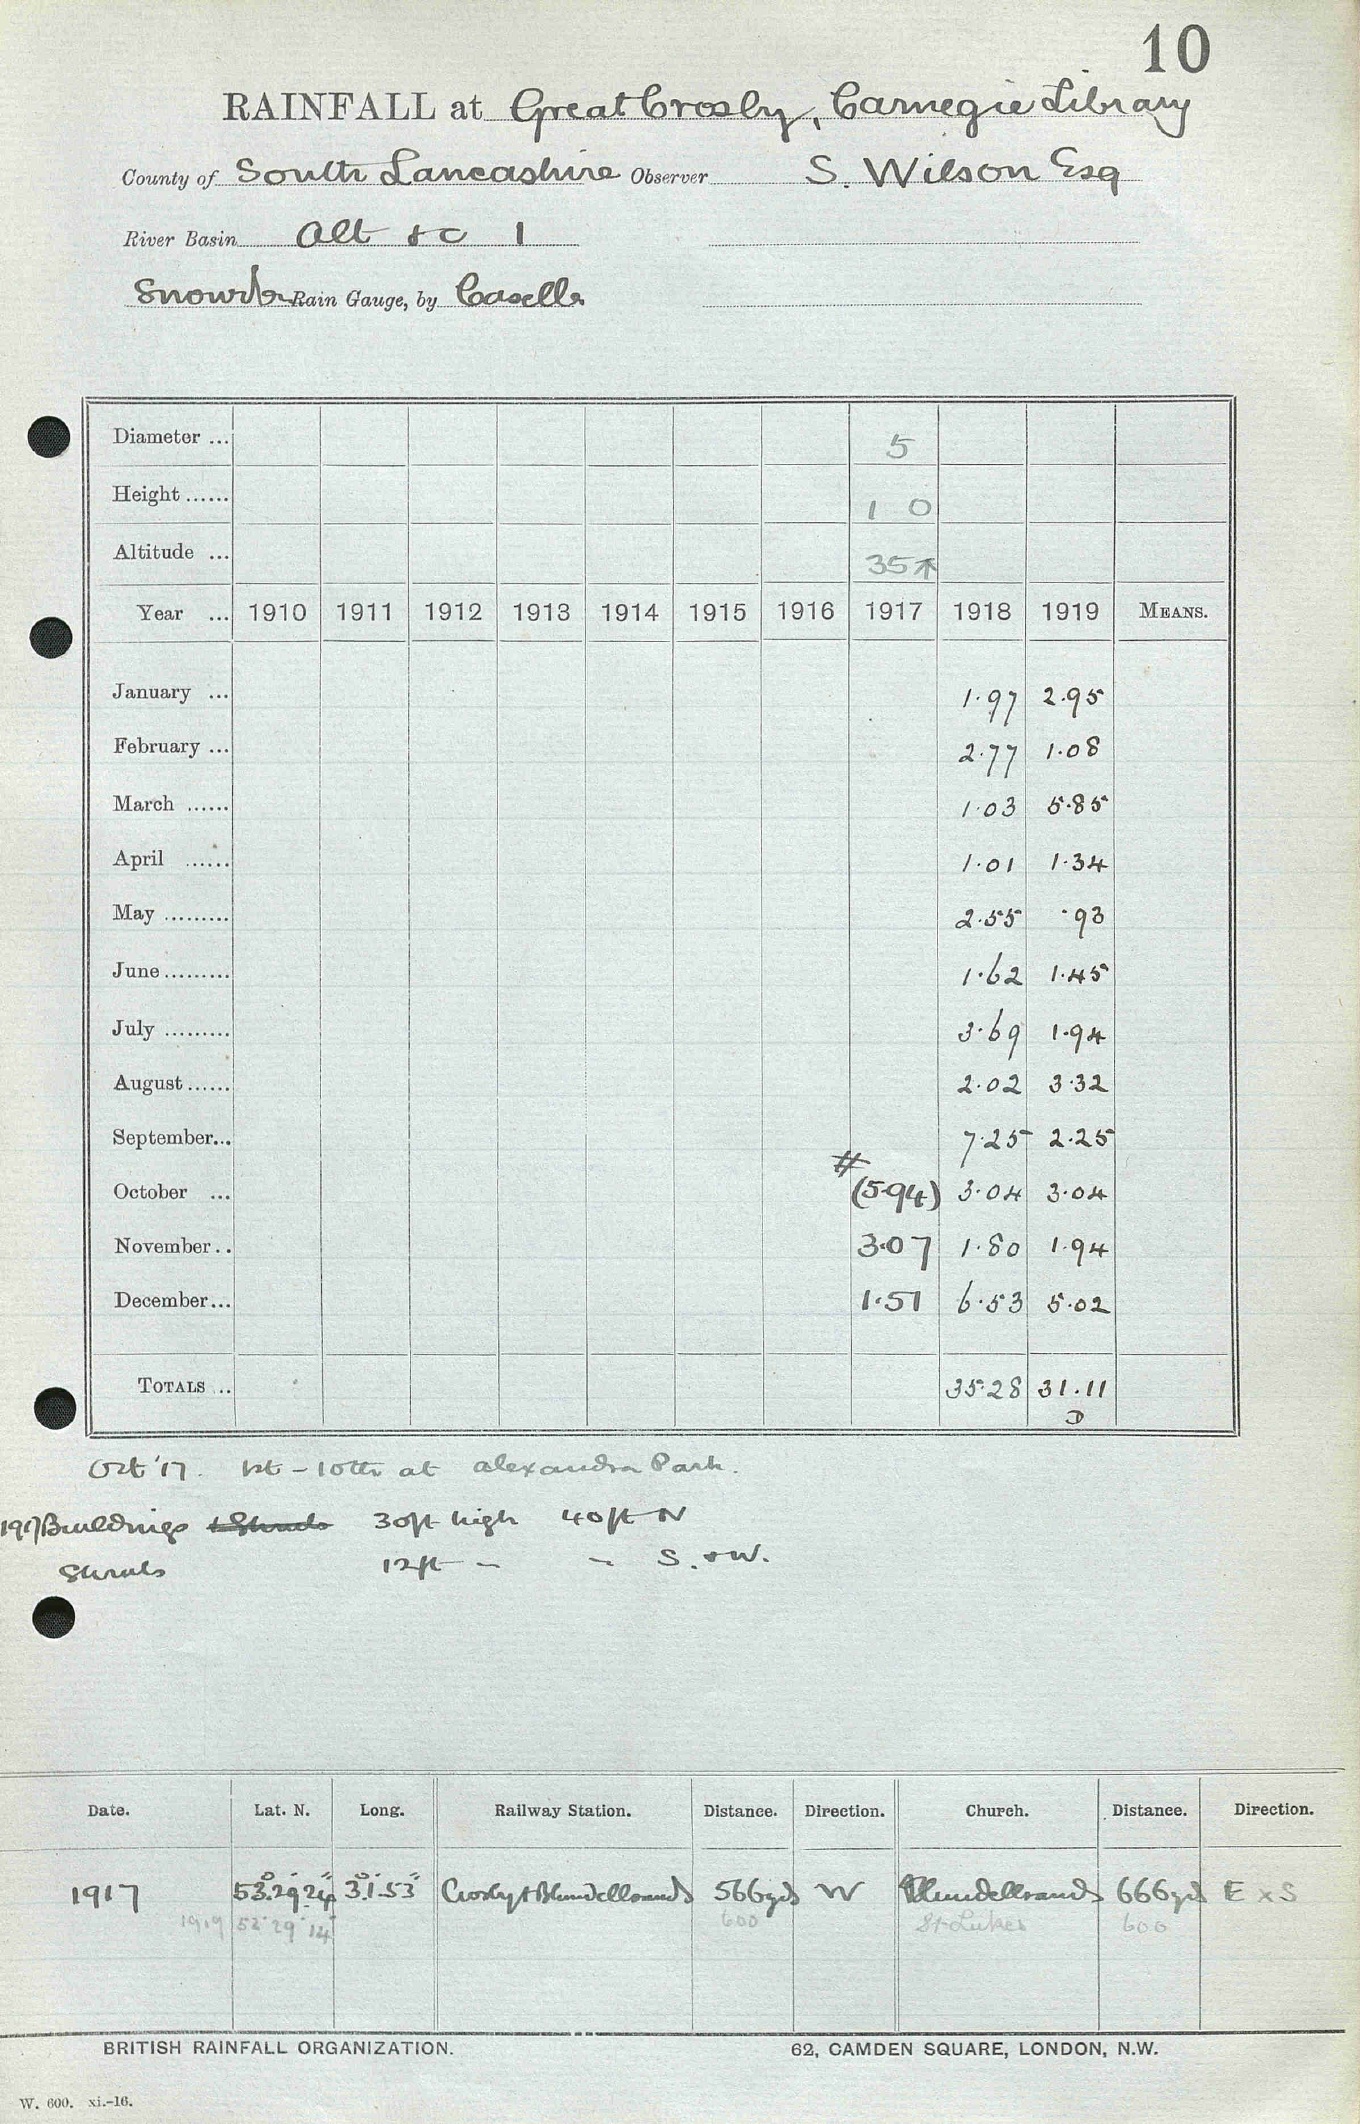 10
RAINFALL at Great Crosby, Carnegie Library
County of South Lancashire Observer S. Wilson Esq
River Basin Alt &c 1
Snowdon Rain Gauge, by Casella
Diameter ... 5
Height ...... 1 0
Altitude ... 35
Year ... 1910 1911 1912 1913 1914 1915 1916 1917 1918 1919 MEANS.
January ... 1.97 2.95
February ... 2.77 1.08
March ...... 1.03 5.85
April ...... 1.01 1.34
May ......... 2.55 .93
June ......... 1.62 1.45
July ......... 3.69 1.94
August ...... 2.02 3.32
September... 7.25 2.25
#
October ... (5.94) 3.04 3.04
November.. 3.07 1.80 1.94
December... 1.51 6.53 5.02
TOTALS ... 35.28 31.11
D
Oct '17. 1st - 10th at Alexandra Park.
1917 Buildings & Shrubs 30ft high 40ft N
Shrubs 12ft - - S. & W.
Date. Lat. N. Long. Railway Station. Distance. Direction. Church. Distance. Direction.
1917 53° 29' 24" 3° 1' 53" Crosby & Blundellsands 566 yds W Blundellsands 666 yds E x S
1919 53° 29' 14" 600 St Lukes 600
BRITISH RAINFALL ORGANIZATION. 62, CAMDEN SQUARE, LONDON, N.W.
W. 600. xi.-16.